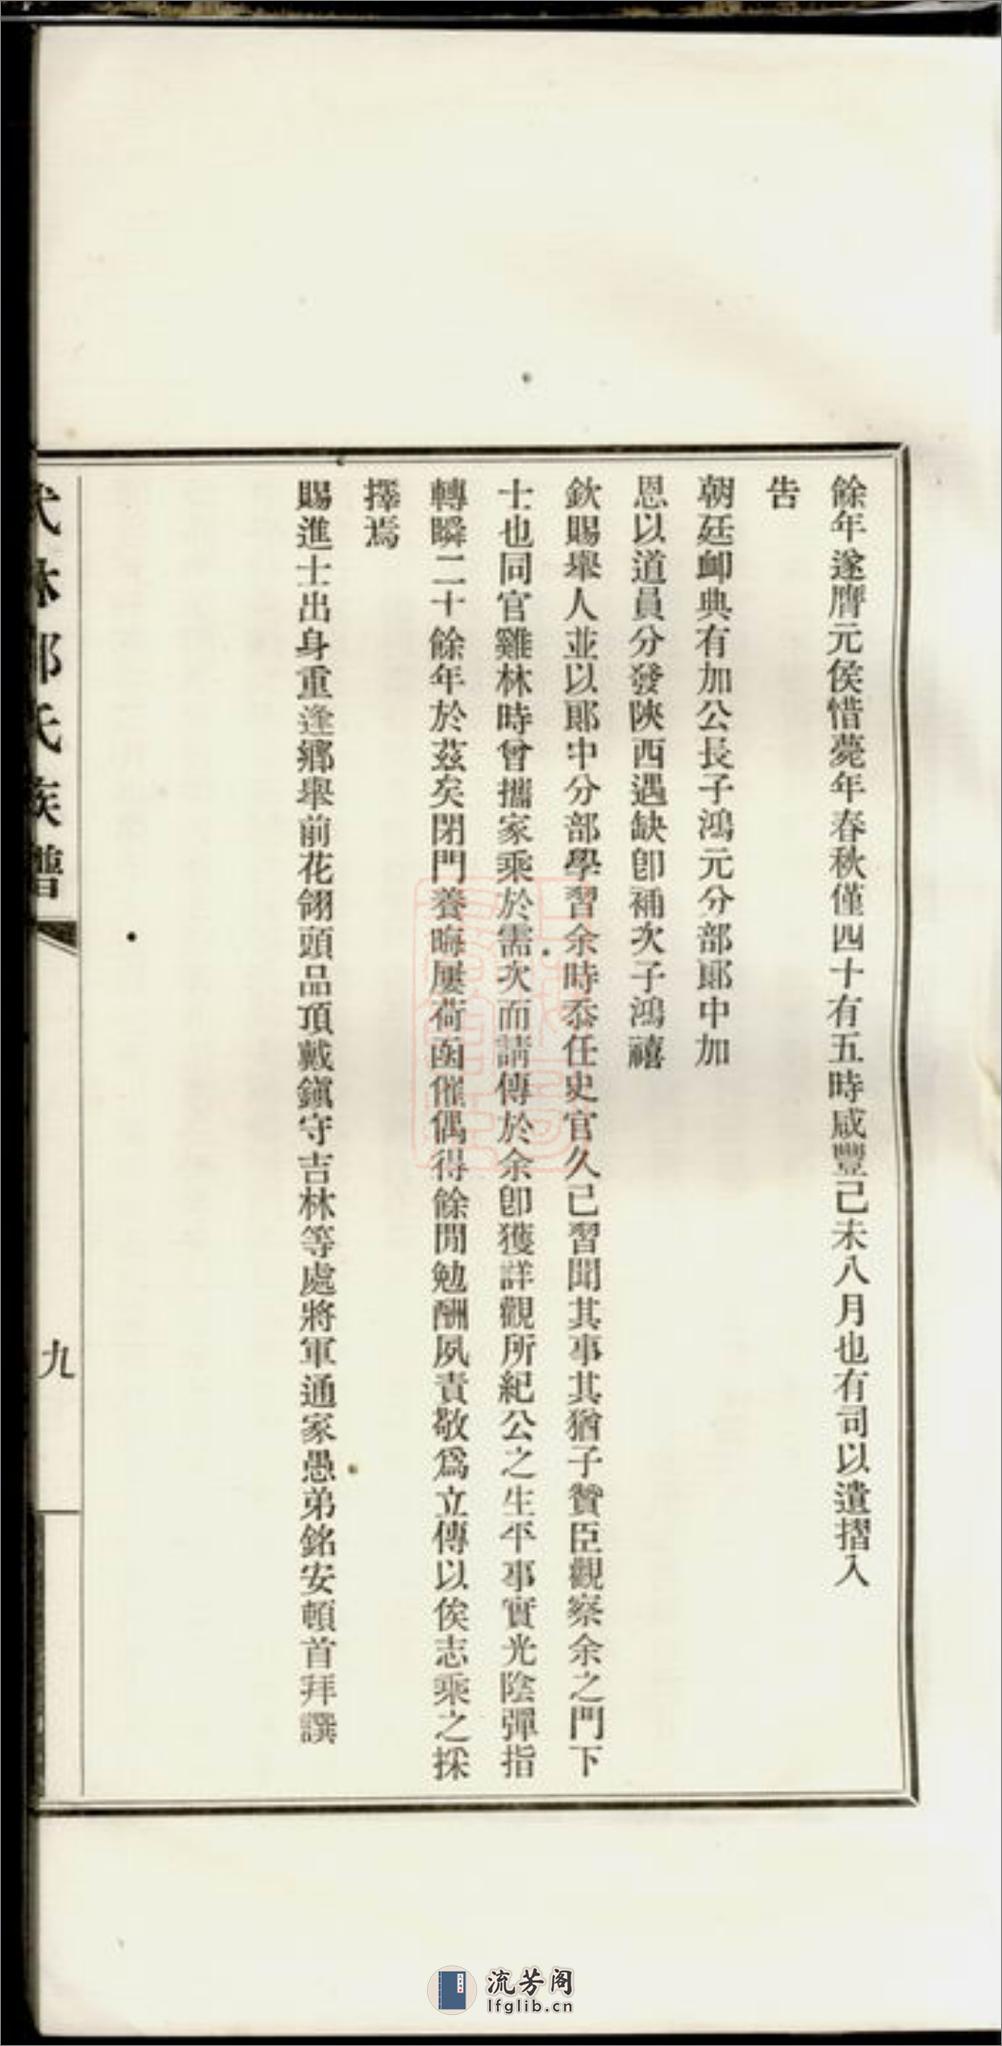 餘年遂膺元侯惜薨年春秋僅四十有五時咸豐己未八月也有司以遺摺入
告
朝廷卹典有加公長子鴻元分部郎中加
恩以道員分發陝西遇缺卽補次子鴻禧
欽賜舉人並以郎中分部學習余時忝任史官久已習聞其事其猶子贊臣觀察余之門下
士也同官雞林時曾攜家乘於需次而請傳於余卽獲詳觀所紀公之生平事實光陰彈指
轉瞬二十餘年於茲矣閉門養晦屢荷函催偶得餘閒勉酬夙責敬爲立傳以俟志乘之採
擇焉
賜進士出身重逢鄉舉前花翎頭品頂戴鎭守吉林等處將軍通家愚弟銘安頓首拜譔
氏族譜
九
流芳阁
lfglib.cn